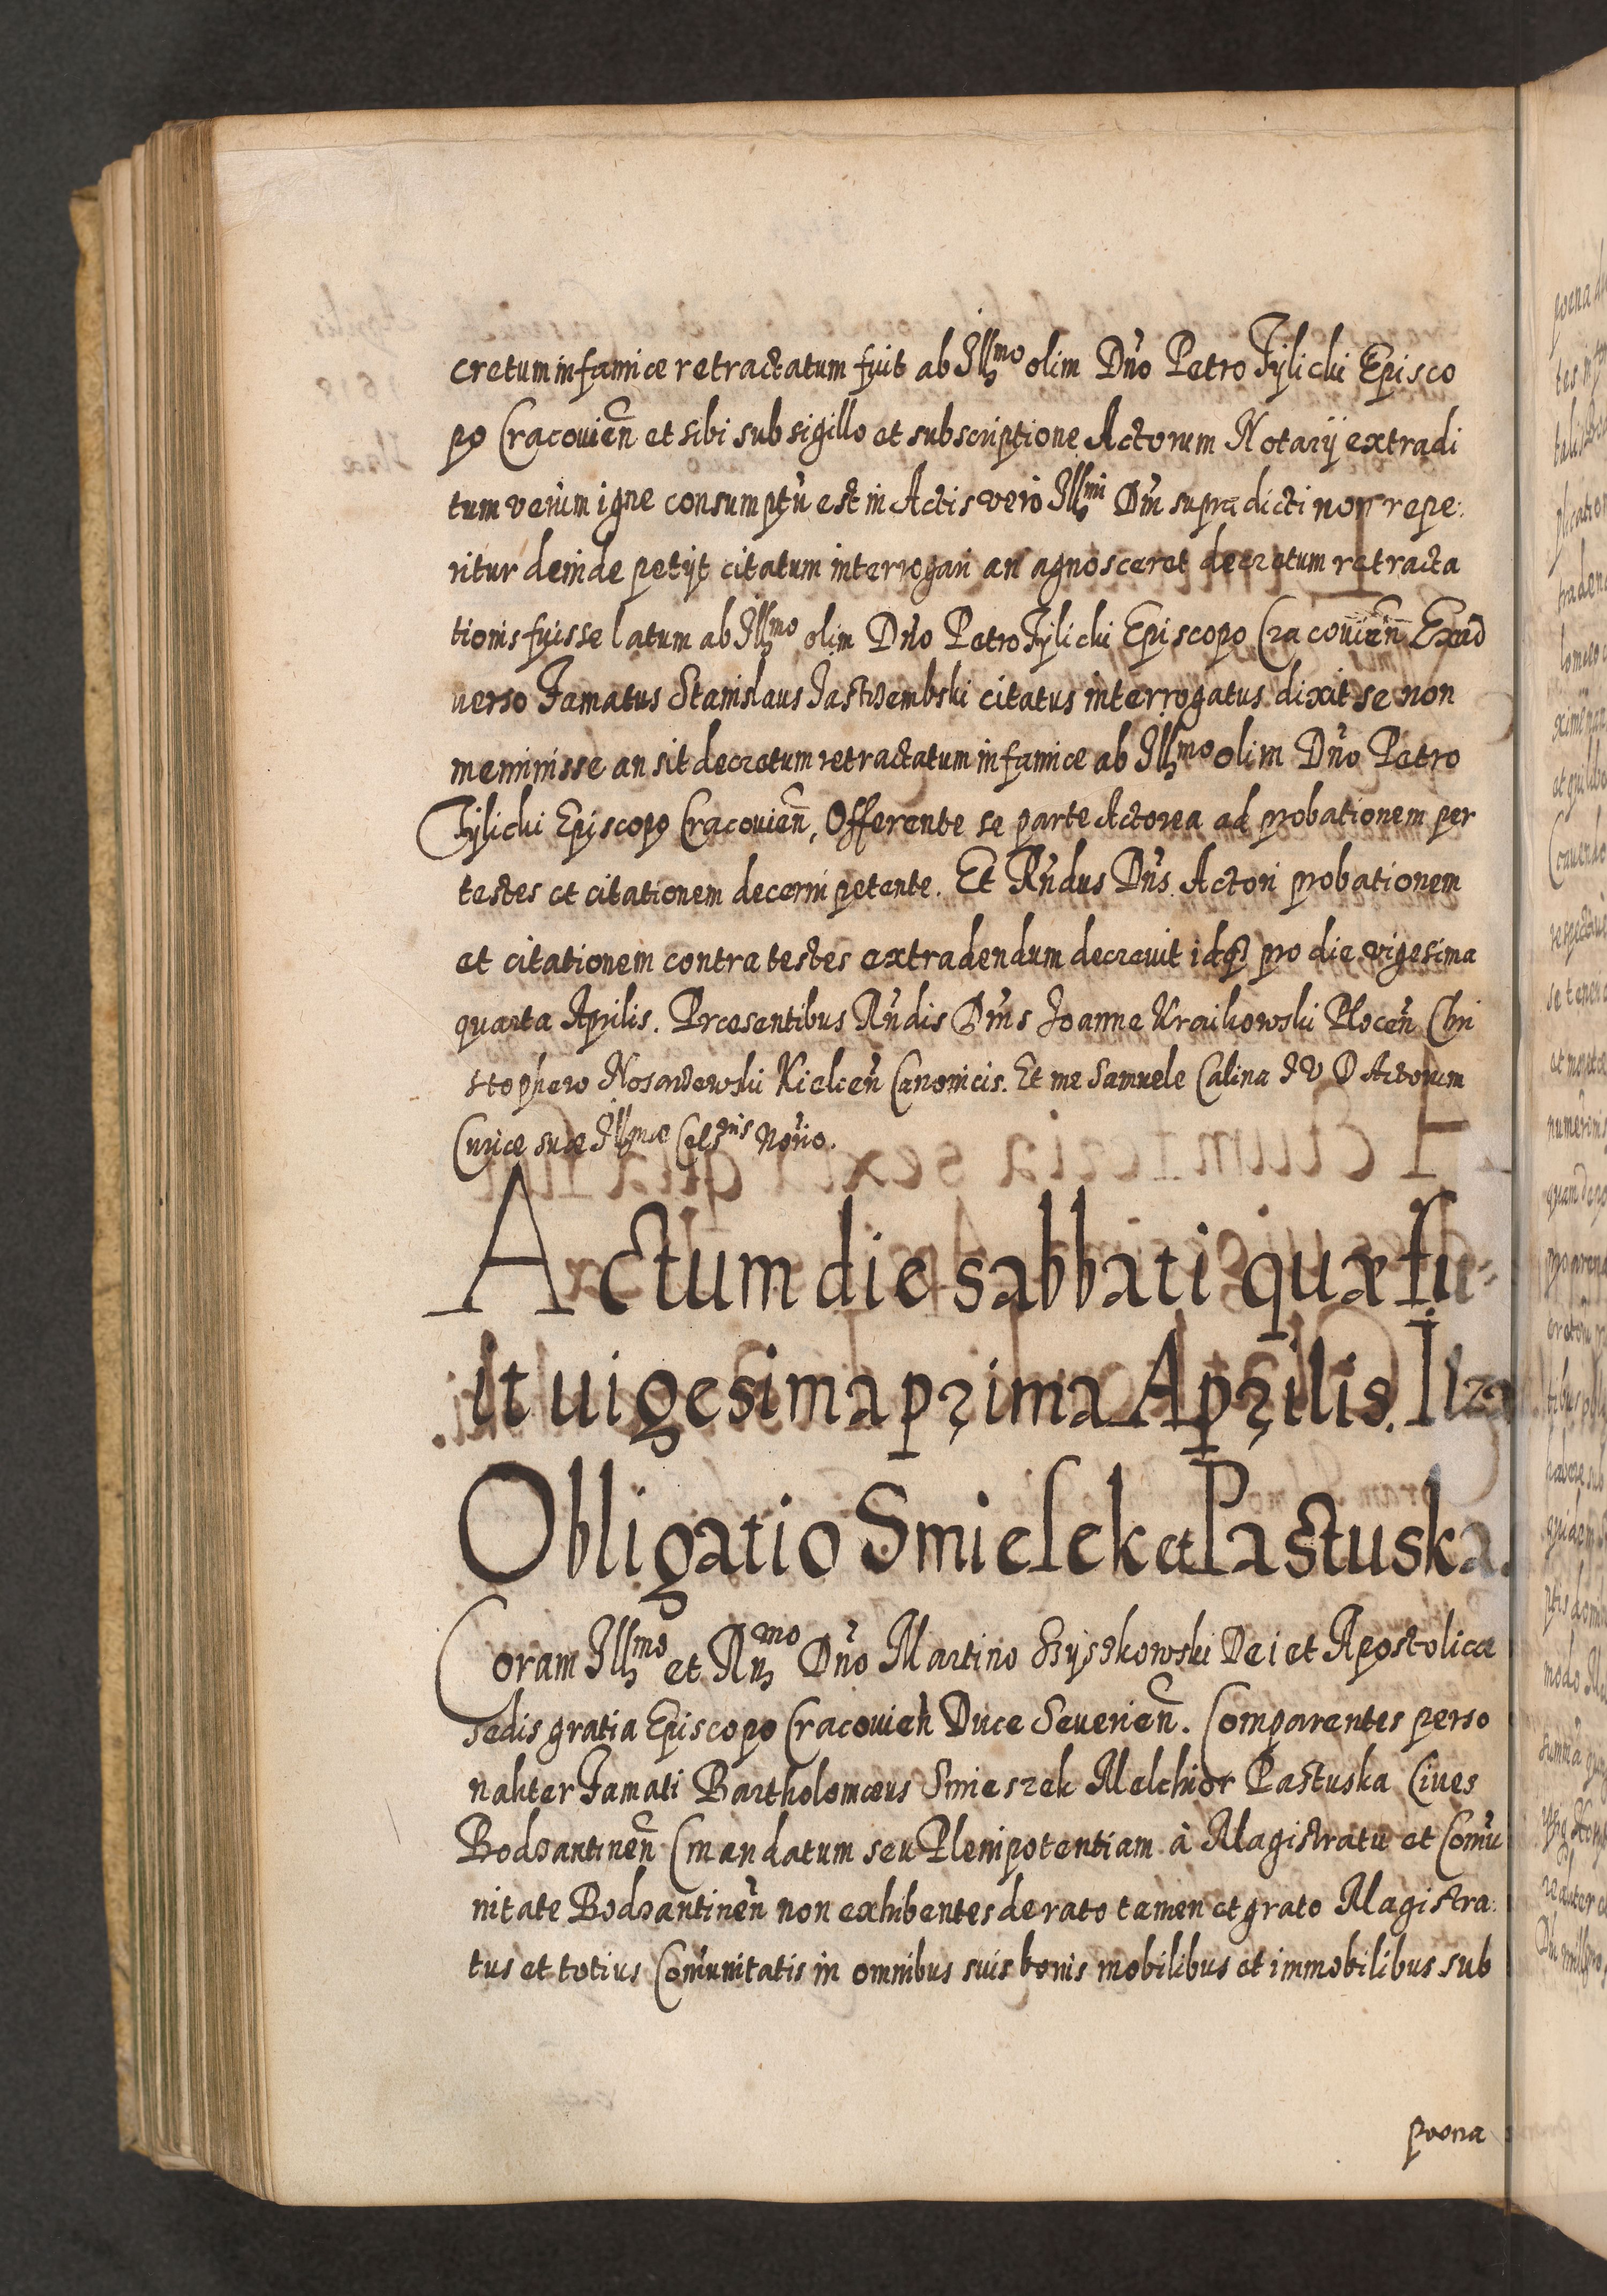 cretum infamiæ retractatum fuit ab Illmo olim Dño Petro Tylicki Episco
po Cracovieñ et sibi sub sigillo et subscriptione Actorum Notarij extradi
tum verùm igne consumptũ est in Actis verò Illmi Dñi supra dicti non repe:
ritur deinde petijt citatum interrogari an agnosceret decretum retracta
tionis fuisse latum ab Illmo olim Dño Petro Tylicki Episcopo Cracovieñ Exad
uerso Famatus Stanislaus Jastrzembski citatus interrogatus dixit se non
meminisse an sit decretum retractatum infamiæ ab Illmo olim Dño Petro
Tylicki Episcopo Cracovieñ, Offerente se parte Actorea ad probationem per
testes et citationem decerni petente. Et Rñdus Dñs Actori probationem
et citationem contra testes extradendum decrevit idq3 pro die vigesima
quarta Aprilis. Præsentibus Rñdis Dñis Joanne Kraikowski Ploceñ Chri
stophero Nosadowski Kielceñ Canonicis. Et me Samuele Calina I V D Actorum
Curiæ suæ Illmæ Celsnis Norio.
Actum die sabbati quæ fu-
it uigesima prima Aprilis. Ilza
Obligatio Smielek et Pastuska.
Coram Illmo et Rmo Dño Martino Szyszkowski Dei et Apostolicæ
sedis gratia Episcopo Cracovieñ Duce Severieñ. Comparentes perso
naliter Famati Bartholomæus Smieszek Melchior Pastuska Cives
Bodzantineñ (mandatum seu Plenipotentiam à Magistratu et Com̃u
nitate Bodzantineñ non exhibentes de rato tamen et grato Magistra:
tus et totius Com̃unitatis in omnibus suis bonis mobilibus et immobilibus sub
poena